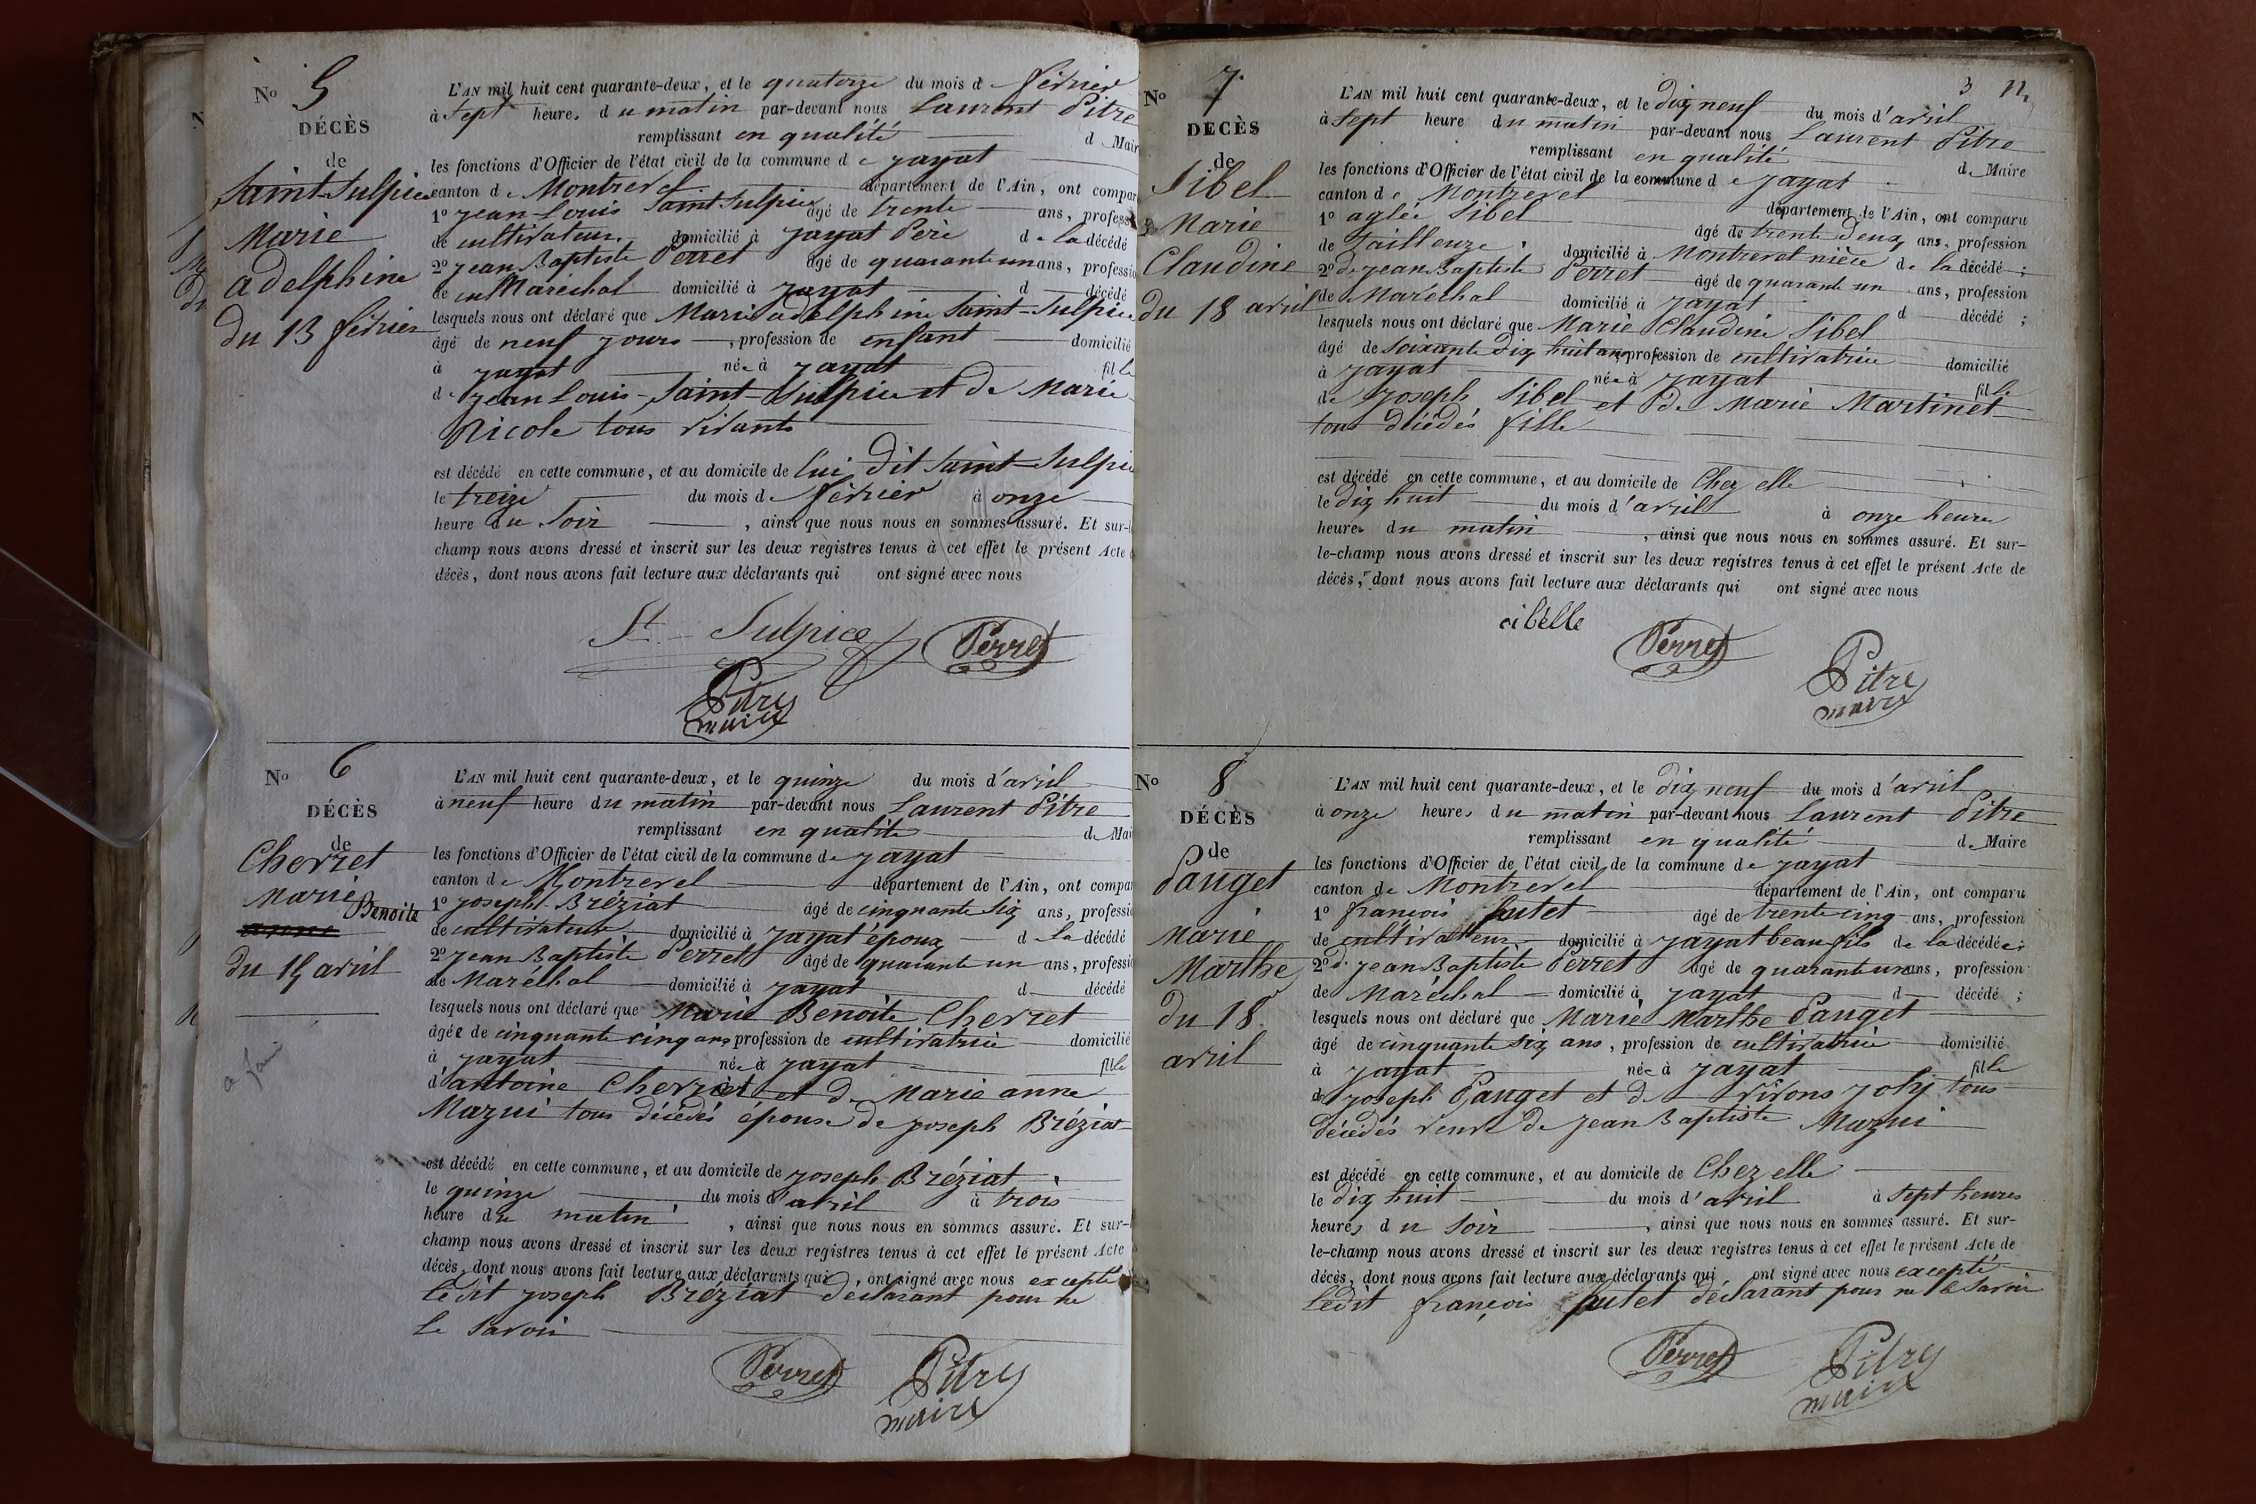 No 5
DÉCÈS
de
Saint-Sulpice
Marie
adelphine
du 13 février
L'AN mil huit cent quarante-deux, et le quatorze du mois de février
à sept heures du matin par-devant nous Laurent Pitre
remplissant en qualité d Mair
les fonctions d'Officier de l'état civil de la commune de jayat
canton de Montrevel département de l'Ain, ont compar
1º jean-Louis Saint Sulpice âgé de trente ans, profess
de cultivateur domicilié à jayat Père de la décédé
2º jean Baptiste Perret âgé de quarante un ans, professio
de Maréchal domicilié à jayat d décédé
lesquels nous ont déclaré que Marie adelphine Saint-Sulpice
âgé de neuf jours, profession de enfant domicilié
à jayat née à jayat fille
de jean Louis-Saint-Sulpice et de Marie
Nicole tous vivants
est décédé en cette commune, et au domicile de lui dit Saint-Sulpice
le treize du mois de février à onze
heure du soir, ainsi que nous nous en sommes assuré. Et sur-
champ nous avons dressé et inscrit sur les deux registres tenus à cet effet le présent Acte
décès, dont nous avons fait lecture aux déclarants qui ont signé avec nous
St Sulpice Perret
Pitre
maire
No 6
DÉCÈS
de
Chevret
Marie
Benoite
du 15 avril
a faire
L'AN mil huit cent quarante-deux, et le quinze du mois d'avril
à neuf heure du matin par-devant nous Laurent Pitre
remplissant en qualité de Mai
les fonctions d'Officier de l'état civil de la commune de jayat
canton de Montrevel département de l'Ain, ont compa
1º joseph Bréziat âgé de cinquante six ans, professi
de cultivateur domicilié à jayat époux d la décédé
2º jean Baptiste Perret âgé de quarante un ans, professi
de Maréchal domicilié à jayat d décédé
lesquels nous ont déclaré que Marie Benoite Chevret
âgée de cinquante cinq ans profession de cultivatrice domicilié
à jayat née à jayat fille
d'antoine Chevret et de Marie anne
Mazui tous décédés épouse de joseph Bréziat
est décédé en cette commune, et au domicile de joseph Bréziat
le quinze du mois d'avril à trois
heure du matin, ainsi que nous nous en sommes assuré. Et sur-
champ nous avons dressé et inscrit sur les deux registres tenus à cet effet le présent Acte
décès, dont nous avons fait lecture aux déclarants qui, ont signé avec nous excepté
ledit joseph Bréziat déclarant pour ne
le savoir
Perret Pitre
maire
3 11
No 7
DECÈS
de
Sibel
Marie
Claudine
du 18 avril
L'AN mil huit cent quarante-deux, et le dix neuf du mois d'avril
à sept heure du matin par-devant nous Laurent Pitre
remplissant en qualité de Maire
les fonctions d'Officier de l'état civil de la commune de jayat
canton de Montrevel département de l'Ain, ont comparu
1º aglée Sibel âgé de trente deux ans, profession
de Tailleuze domicilié à Montrevel nièce de la décédé;
2º d. jean Baptiste Perret âgé de quarante un ans, profession
de Maréchal domicilié à jayat d décédé;
lesquels nous ont déclaré que Marie Claudine Sibel
âgé de soixante dix huit ans, profession de cultivatrice domicilié
à jayat née à jayat fille
de joseph Sibel et de Marie Martinet
tous décédés fille
est décédé en cette commune, et au domicile de Chez elle
le dix huit du mois d'avril à onze heures
heures du matin, ainsi que nous nous en sommes assuré. Et sur-
le-champ nous avons dressé et inscrit sur les deux registres tenus à cet effet le présent Acte de
décès, dont nous avons fait lecture aux déclarants qui ont signé avec nous
cibelle Perret Pitre
maire
No 8
DÉCÈS
de
Pauget
Marie
Marthe
du 18
avril
L'AN mil huit cent quarante-deux, et le dix neuf du mois d'avril
à onze heures du matin par-devant nous Laurent Pitre
remplissant en qualité de Maire
les fonctions d'Officier de l'état civil de la commune de jayat
canton de Montrevel département de l'Ain, ont comparu
1º françois Putet âgé de trente cinq ans, profession
de cultivateur domicilié à jayat beau fils de la décédée;
2º d. jean Baptiste Perret âgé de quarante un ans, profession
de Maréchal domicilié à jayat d décédé;
lesquels nous ont déclaré que Marie Marthe Pauget
âgé de cinquante six ans, profession de cultivatrice domicilié
à jayat née à jayat fille
de joseph Pauget et de joly tous
décédés veuve de jean Baptiste Mazui
est décédé en cette commune, et au domicile de Chez elle
le dix huit du mois d'avril à sept heures
heures du soir, ainsi que nous nous en sommes assuré. Et sur-
le-champ nous avons dressé et inscrit sur les deux registres tenus à cet effet le présent Acte de
décès, dont nous avons fait lecture aux déclarants qui ont signé avec nous excepté
ledit françois Putet déclarant pour ne le savoir
Perret Pitre
maire